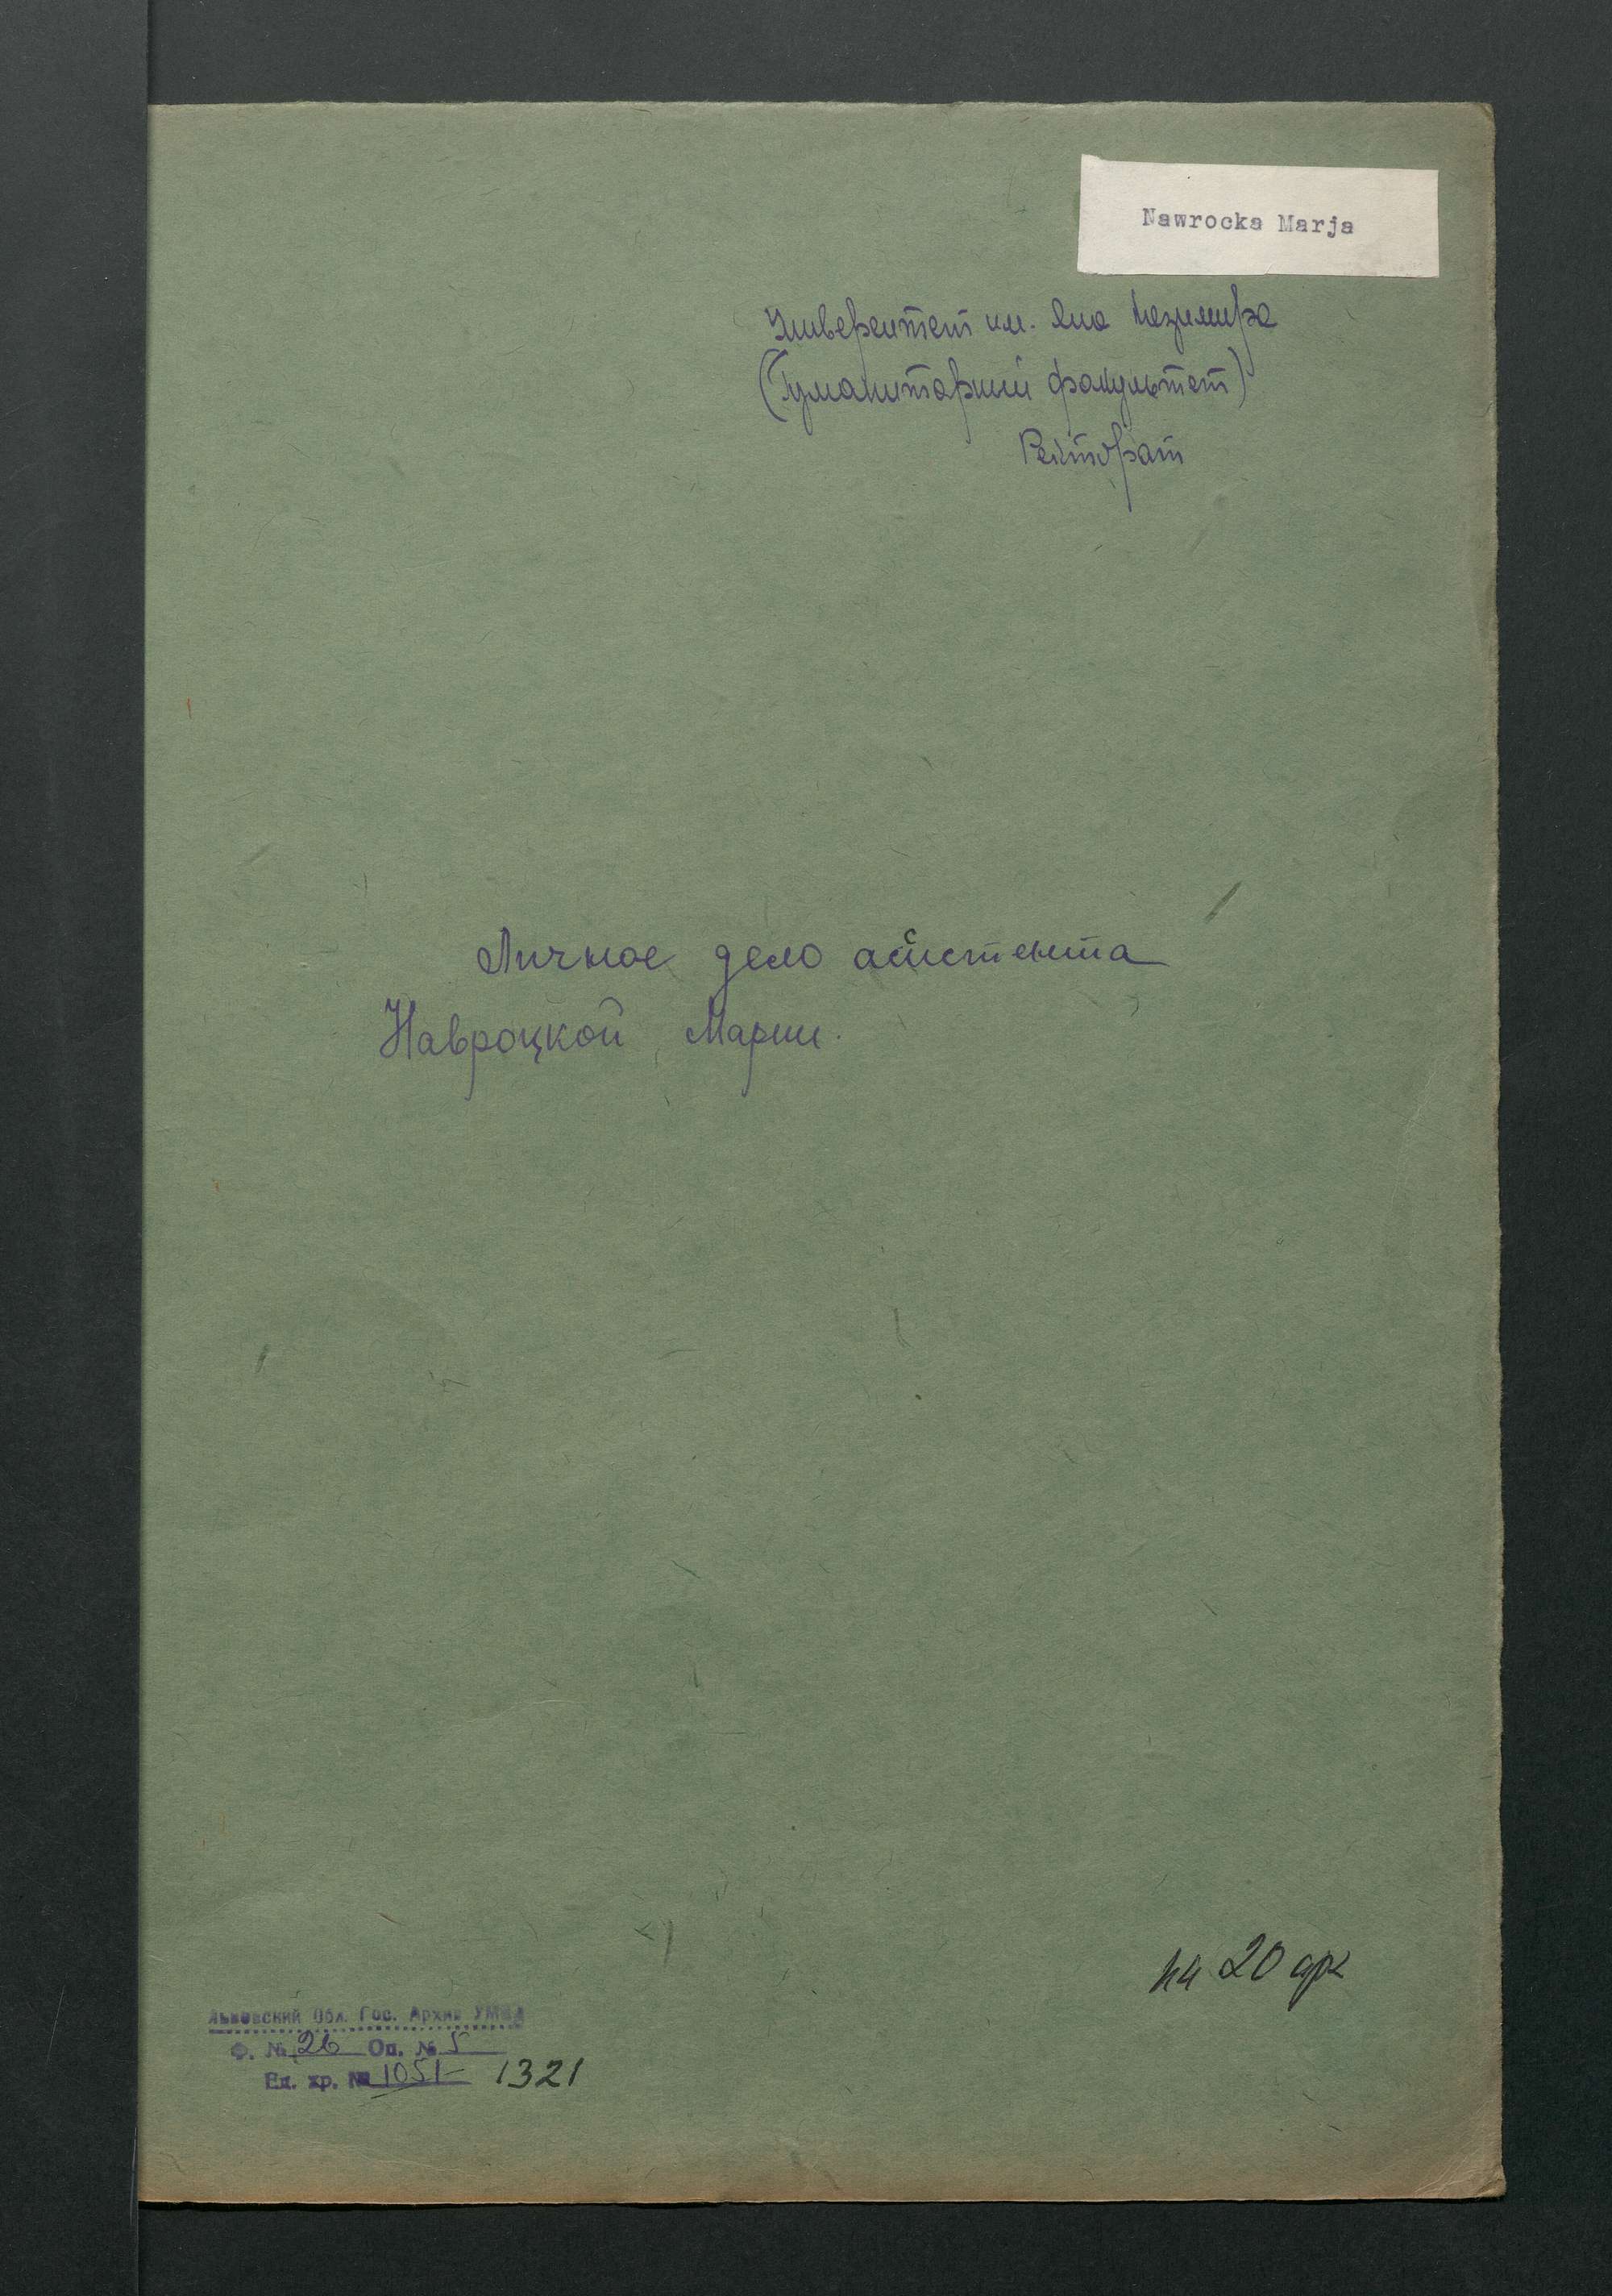 Nawrocka Marja
Университет им. Яна Казимира
(Гуманитарный факультет)
Ректорат
Личное дело ассистента
Навроцкой Марии.
на 20 арк
Львовский Обл. Гос. Архив УМВД
Ф. № 26 Оп. № 5
Ед. хр. № 1051 1321